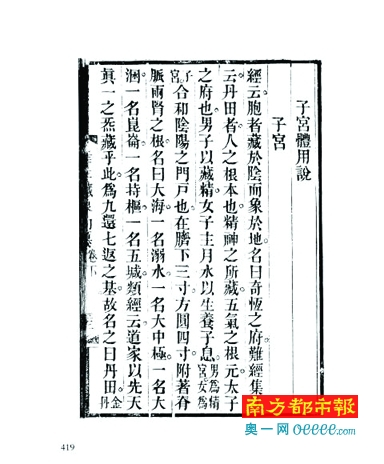 子宮體用說
子宮
經云胞者藏於陰而象於地名曰奇恆之府難經集
云丹田者人之根本也精神之所藏五氣之根元太子
之府也男子以藏精女子主月水以生養子息男爲精宮女爲
子宮合和陰陽之門戶也在臍下三寸方圓四寸附著脊
脈兩腎之根名曰大海一名溺水一名大中極一名大
涃一名崑崙一名持樞一名五城類經云道家以先天
眞一之炁藏乎此爲九還七返之基故名之曰丹田金丹
卷下
419
南方都市報
奧一网 oeeee.com